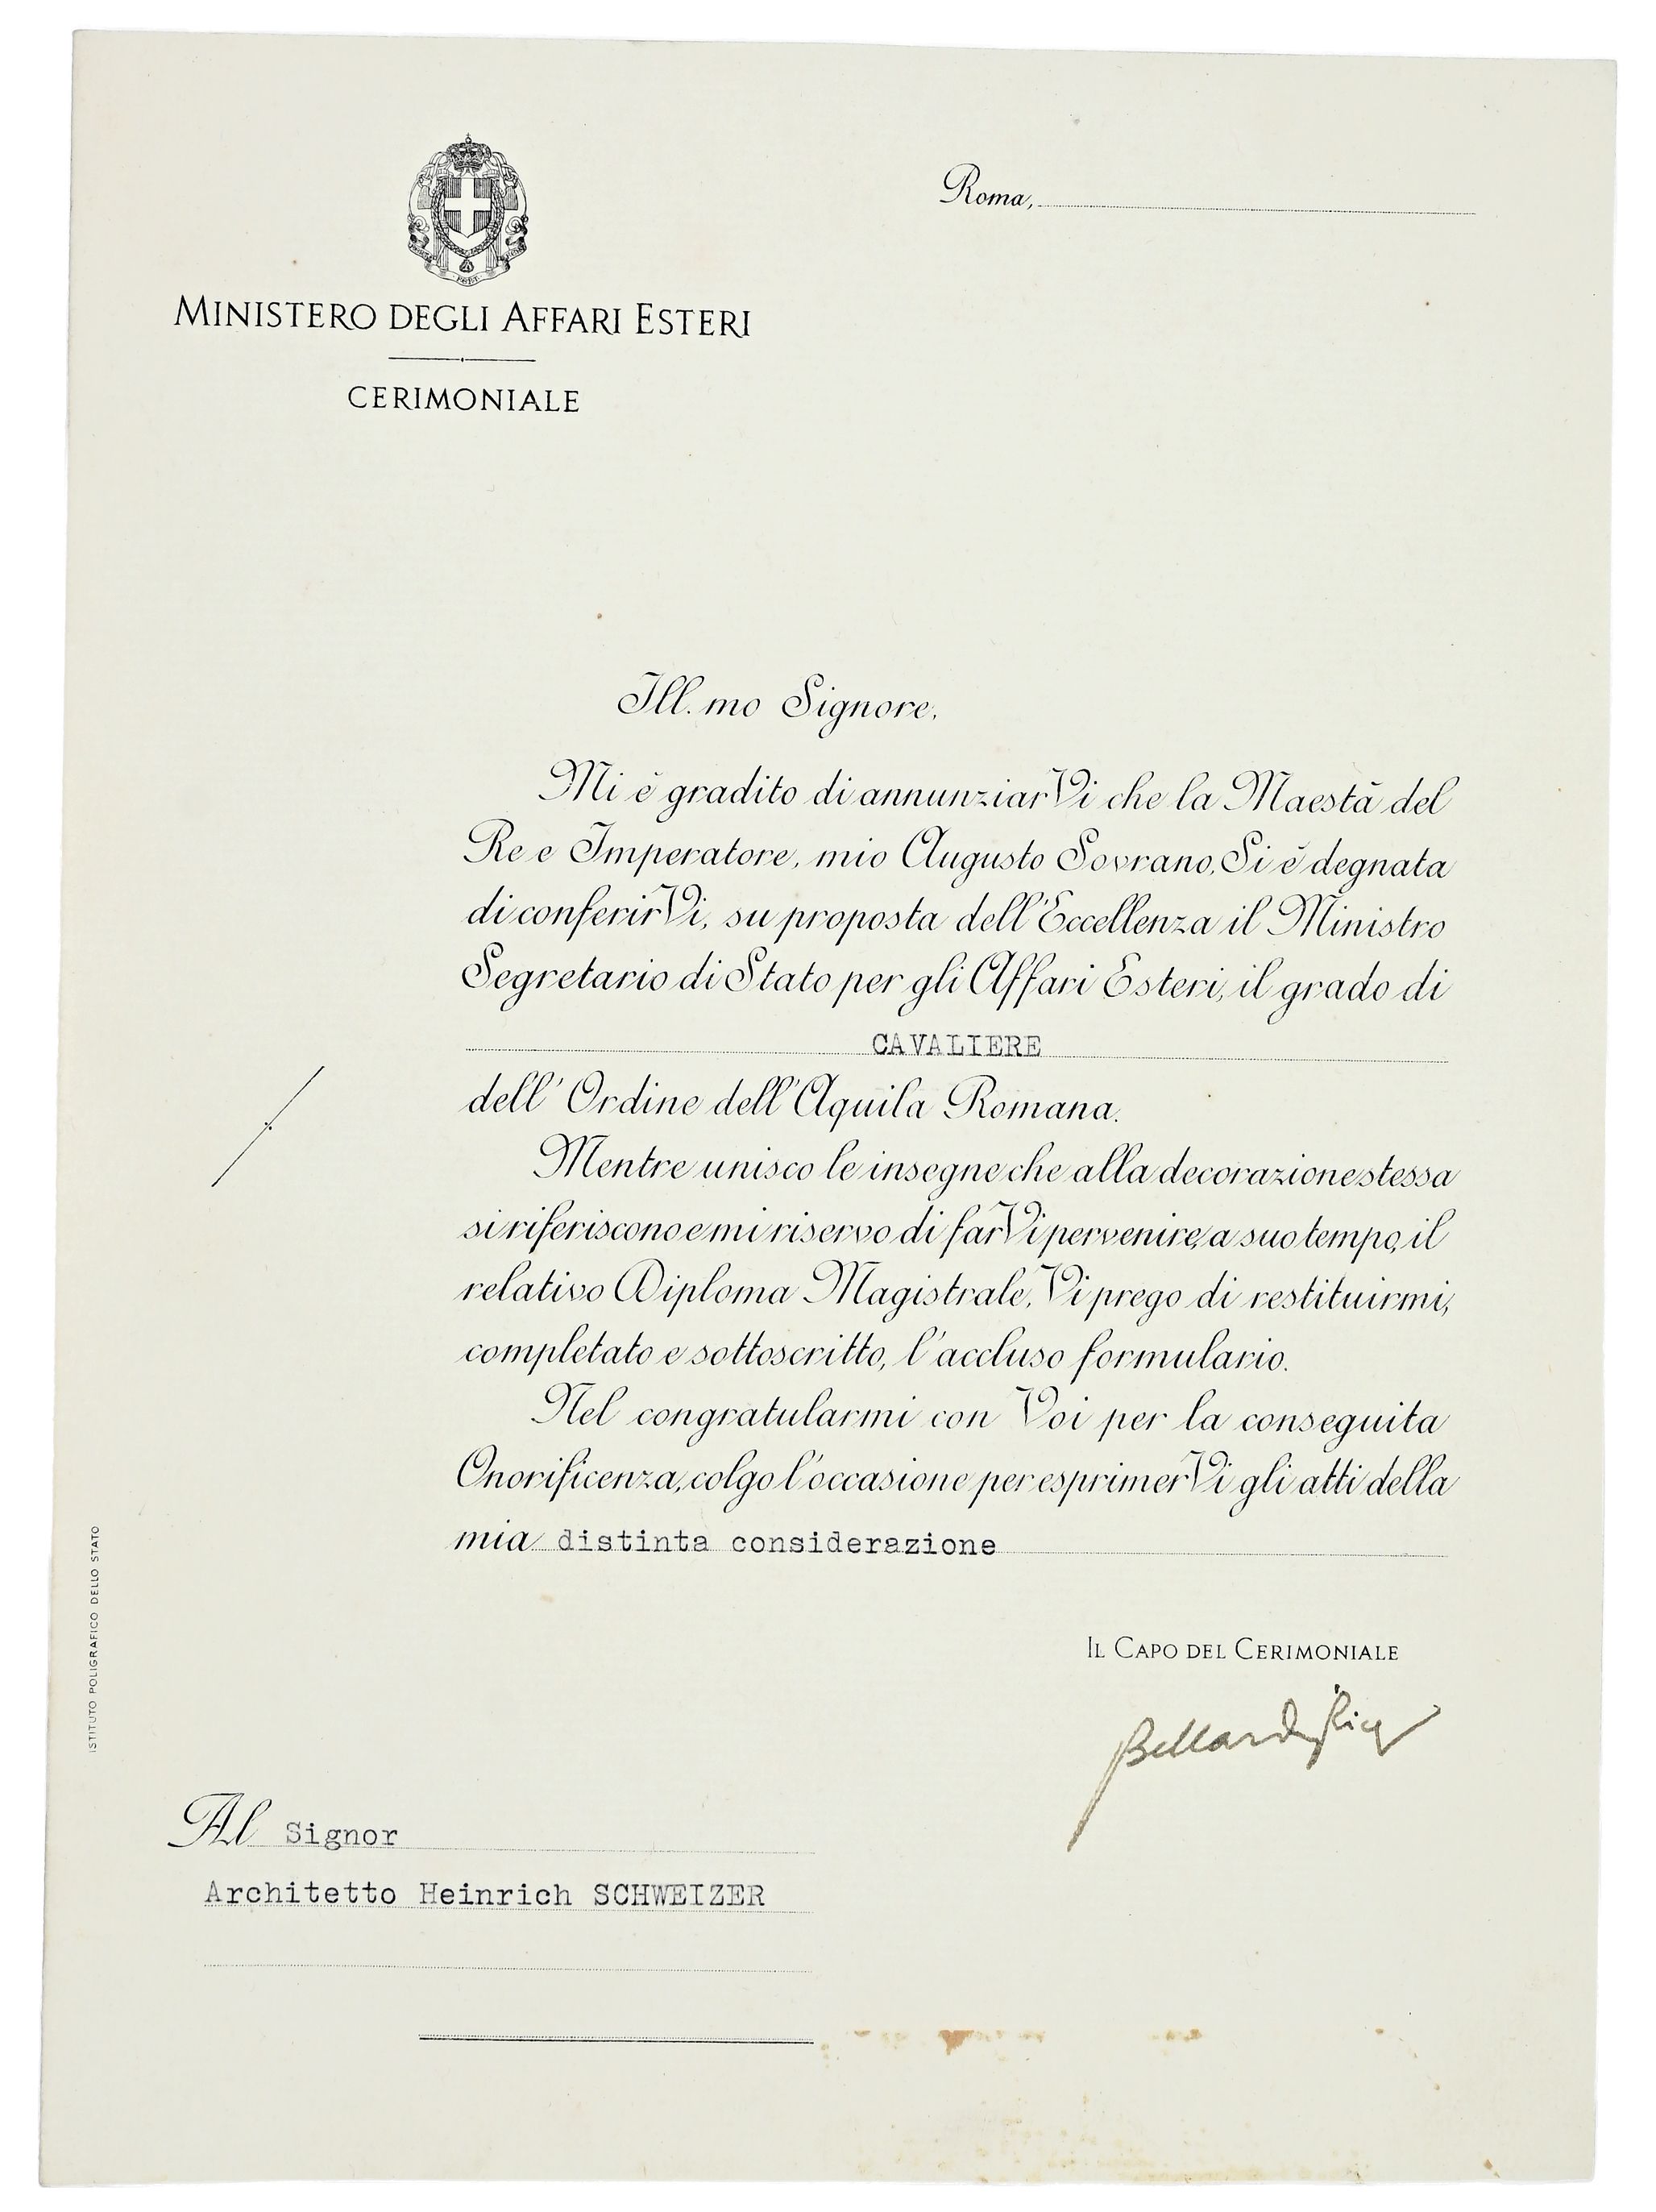 Roma,
MINISTERO DEGLI AFFARI ESTERI
CERIMONIALE
Ill. mo Signore,
Mi è gradito di annunziarVi che la Maestà del
Re e Imperatore, mio Augusto Sovrano, Si è degnata
di conferirVi, su proposta dell'Eccellenza il Ministro
Segretario di Stato per gli Affari Esteri, il grado di
CAVALIERE
dell' Ordine dell'Aquila Romana.
Mentre unisco le insegne che alla decorazione stessa
si riferiscono e mi riservo di farVi pervenire, a suo tempo, il
relativo Diploma Magistrale, Vi prego di restituirmi,
completato e sottoscritto, l'accluso formulario.
Nel congratularmi con Voi per la conseguita
Onorificenza, colgo l'occasione per esprimerVi gli atti della
mia distinta considerazione
IL CAPO DEL CERIMONIALE
Al Signor
Architetto Heinrich SCHWEIZER
ISTITUTO POLIGRAFICO DELLO STATO